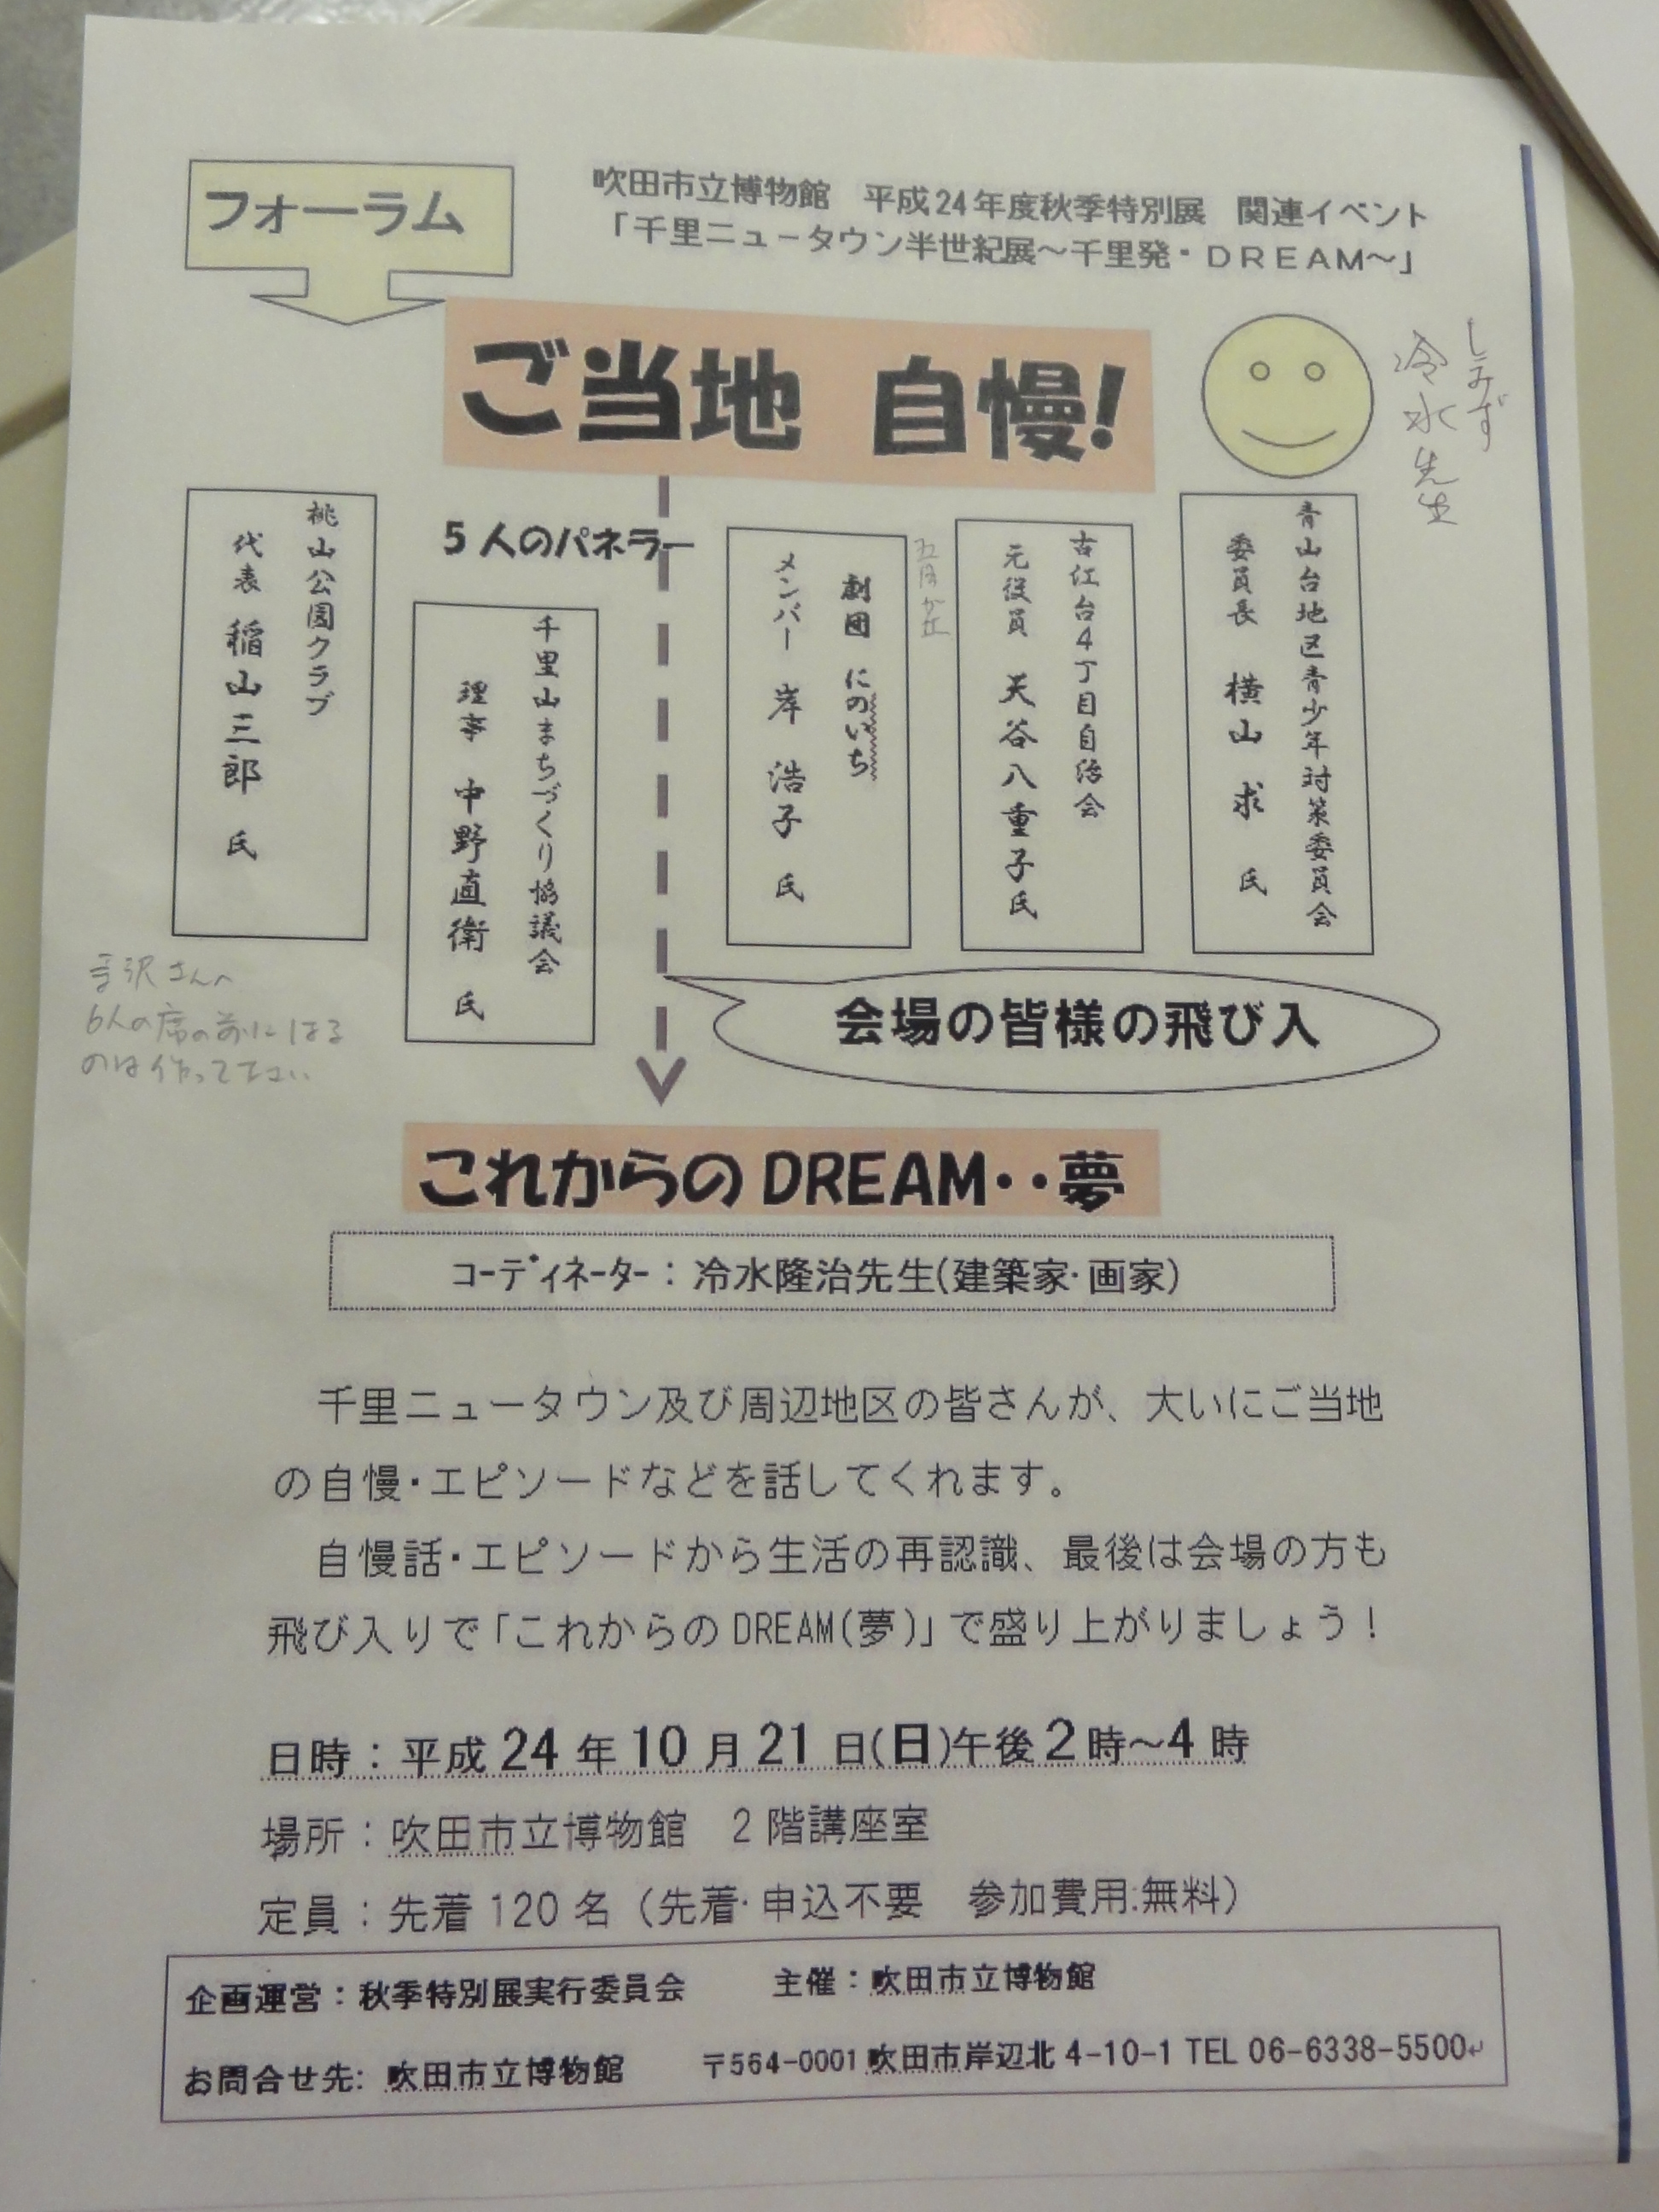 フォーラム
吹田市立博物館　平成24年度秋季特別展　関連イベント
「千里ニュータウン半世紀展～千里発・ＤＲＥＡＭ～」
ご当地 自慢!
しみず
冷水先生
5人のパネラー
青山台地区青少年対策委員会
委員長　横山　求　氏
古江台4丁目自治会
元役員　天谷八重子氏
劇団 にのいち
メンバー　岸　浩子　氏
千里山まちづくり協議会
理事　中野直衛　氏
桃山公園クラブ
代表　稲山三郎　氏
さんへ
6人の席の前にはる
のは作って下さい
会場の皆様の飛び入
これからの DREAM・・夢
ｺｰﾃﾞｨﾈｰﾀｰ：冷水隆治先生(建築家・画家)
千里ニュータウン及び周辺地区の皆さんが、大いにご当地
の自慢・エピソードなどを話してくれます。
自慢話・エピソードから生活の再認識、最後は会場の方も
飛び入りで「これからの DREAM(夢)」で盛り上がりましょう！
日時：平成 24 年 10 月 21 日(日)午後 2 時～4 時
場所：吹田市立博物館　2 階講座室
定員：先着 120 名（先着・申込不要　参加費用:無料）
企画運営：秋季特別展実行委員会　主催：吹田市立博物館
お問合せ先: 吹田市立博物館　〒564-0001 吹田市岸辺北 4-10-1 TEL 06-6338-5500